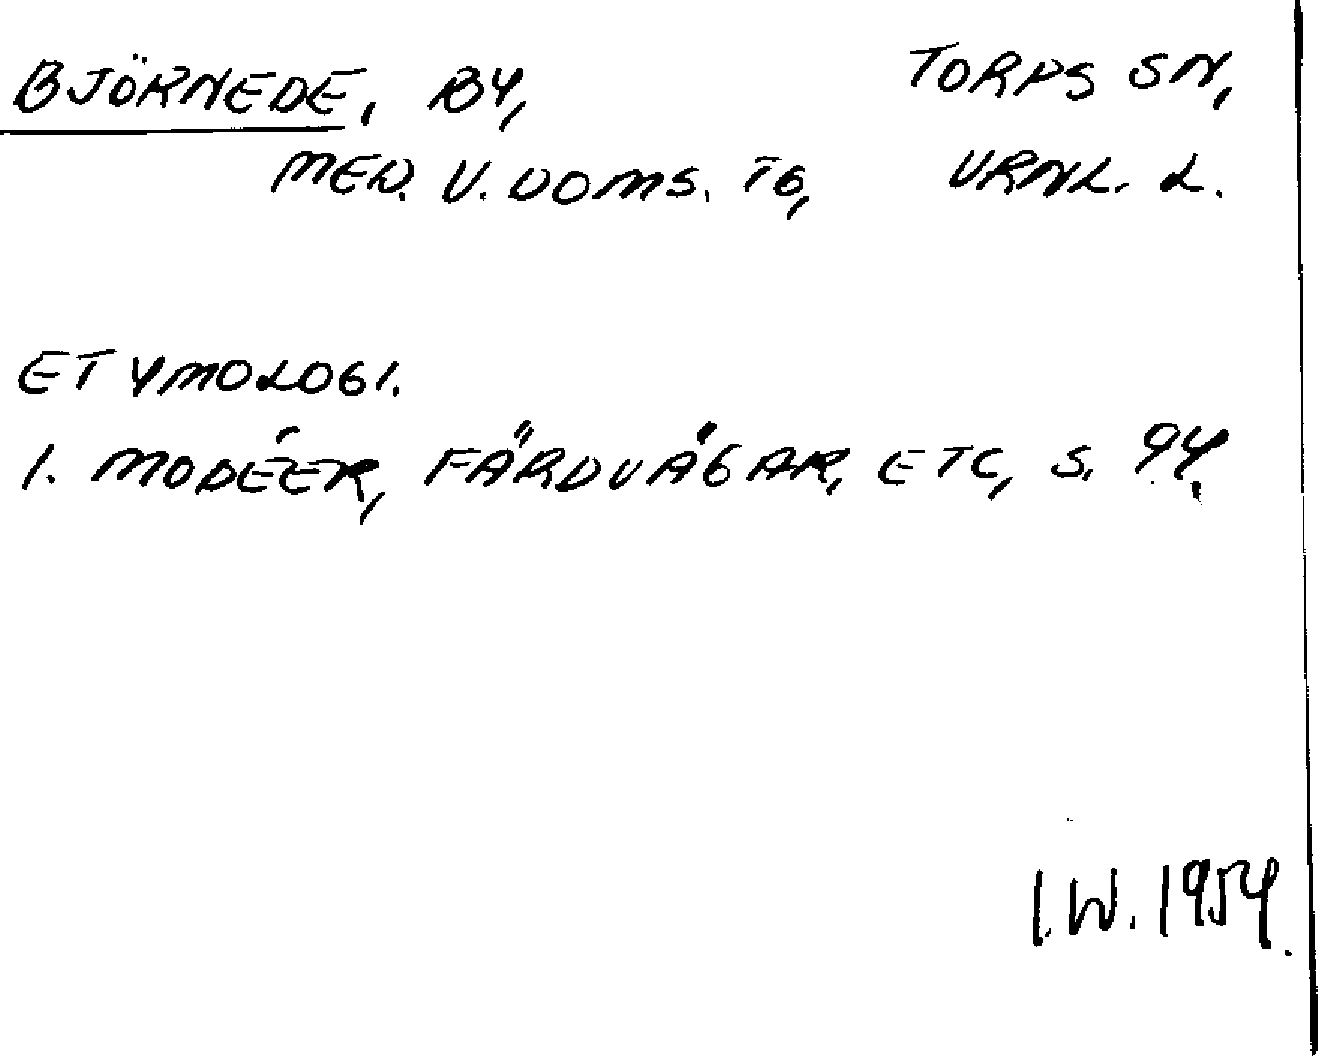 BJÖRNEDE, BY, TORPS SN,
MED. V. DOMS. TG, VRNL. L.
ETYMOLOGI.
1. MODÉER, FÄRDVÄGAR, ETC, S. 94.
I.W. 1954.